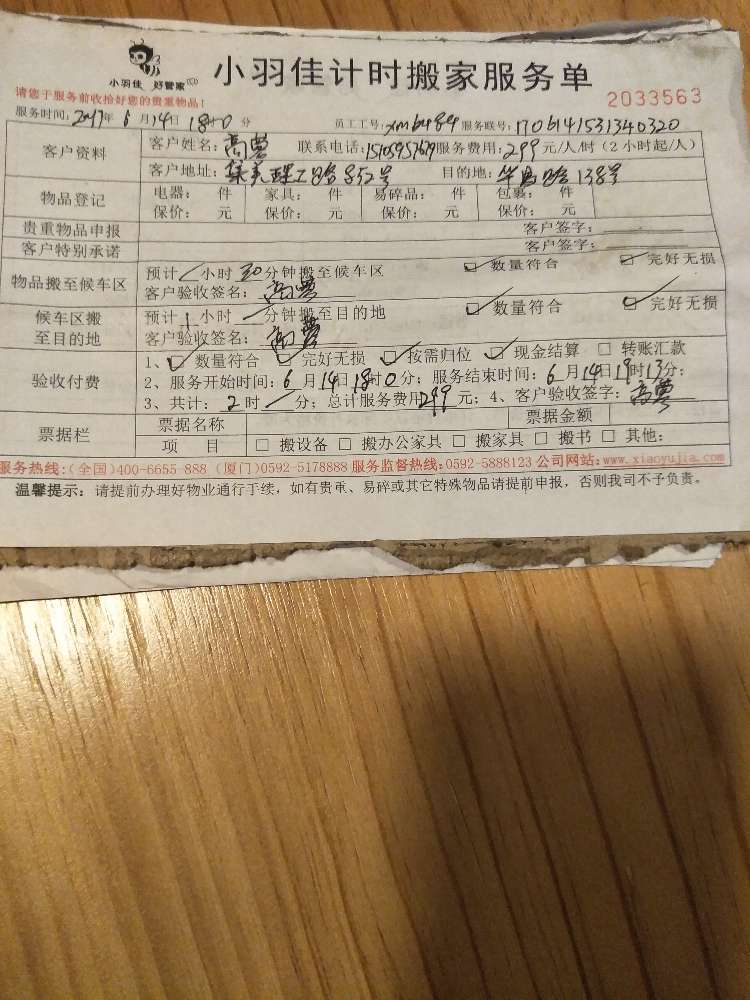 小羽佳 好管家
小羽佳计时搬家服务单
请您于服务前收拾好您的贵重物品!
2033563
服务时间:2017年6月14日18时0分 员工工号:xmb484 服务联号:1706141531340320
客户资料 客户姓名:高 联系电话:服务费用:299元/人/时(2小时起/人)
客户地址:集美理工路852号 目的地:路138号
物品登记 电器: 件 家具: 件 易碎品: 件 包裹: 件
保价: 元 保价: 元 保价: 元 保价: 元
贵重物品申报 客户签字:
客户特别承诺 客户签字:
物品搬至候车区 预计/小时30分钟搬至候车区 ☑数量符合 ☑完好无损
客户验收签名:高
候车区搬至目的地 预计1小时/分钟搬至目的地 ☑数量符合 ☑完好无损
客户验收签名:高
验收付费 1、☑数量符合 ☑完好无损 ☑按需归位 ☑现金结算 □转账汇款
2、服务开始时间:6月14日18时0分;服务结束时间:6月14日19时13分;
3、共计:2时/分;总计服务费用299元;4、客户验收签字:高
票据栏 票据名称 票据金额
项 目 □搬设备 □搬办公家具 □搬家具 □搬书 □其他:
服务热线:(全国)400-6655-888 (厦门)0592-5178888 服务监督热线:0592-5888123 公司网站:www.xiaoyujia.com
温馨提示:请提前办理好物业通行手续,如有贵重、易碎或其它特殊物品请提前申报,否则我司不予负责。